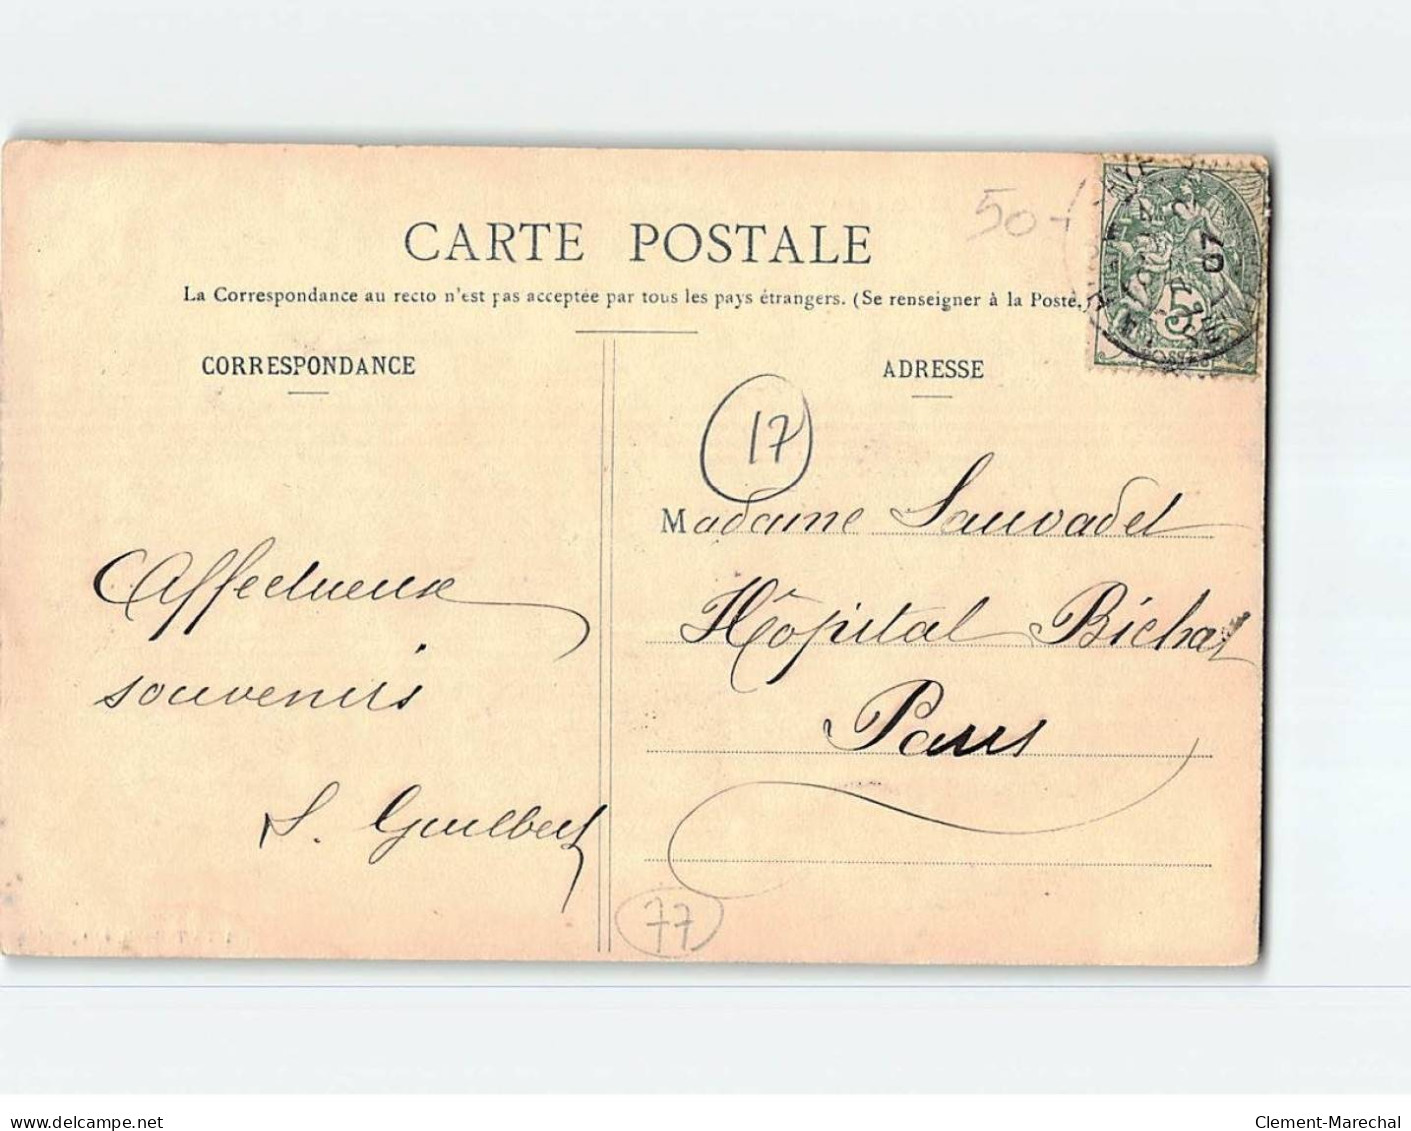 CARTE POSTALE
50-
La Correspondance au recto n'est pas acceptée par tous les pays étrangers. (Se renseigner à la Poste.)
CORRESPONDANCE
Affectueux
souvenirs
S. Guilbert
ADRESSE
17
Madame Sauvadet
Hôpital Bichat
Paris
77
07
5
delcampe.net
Clement-Marechal